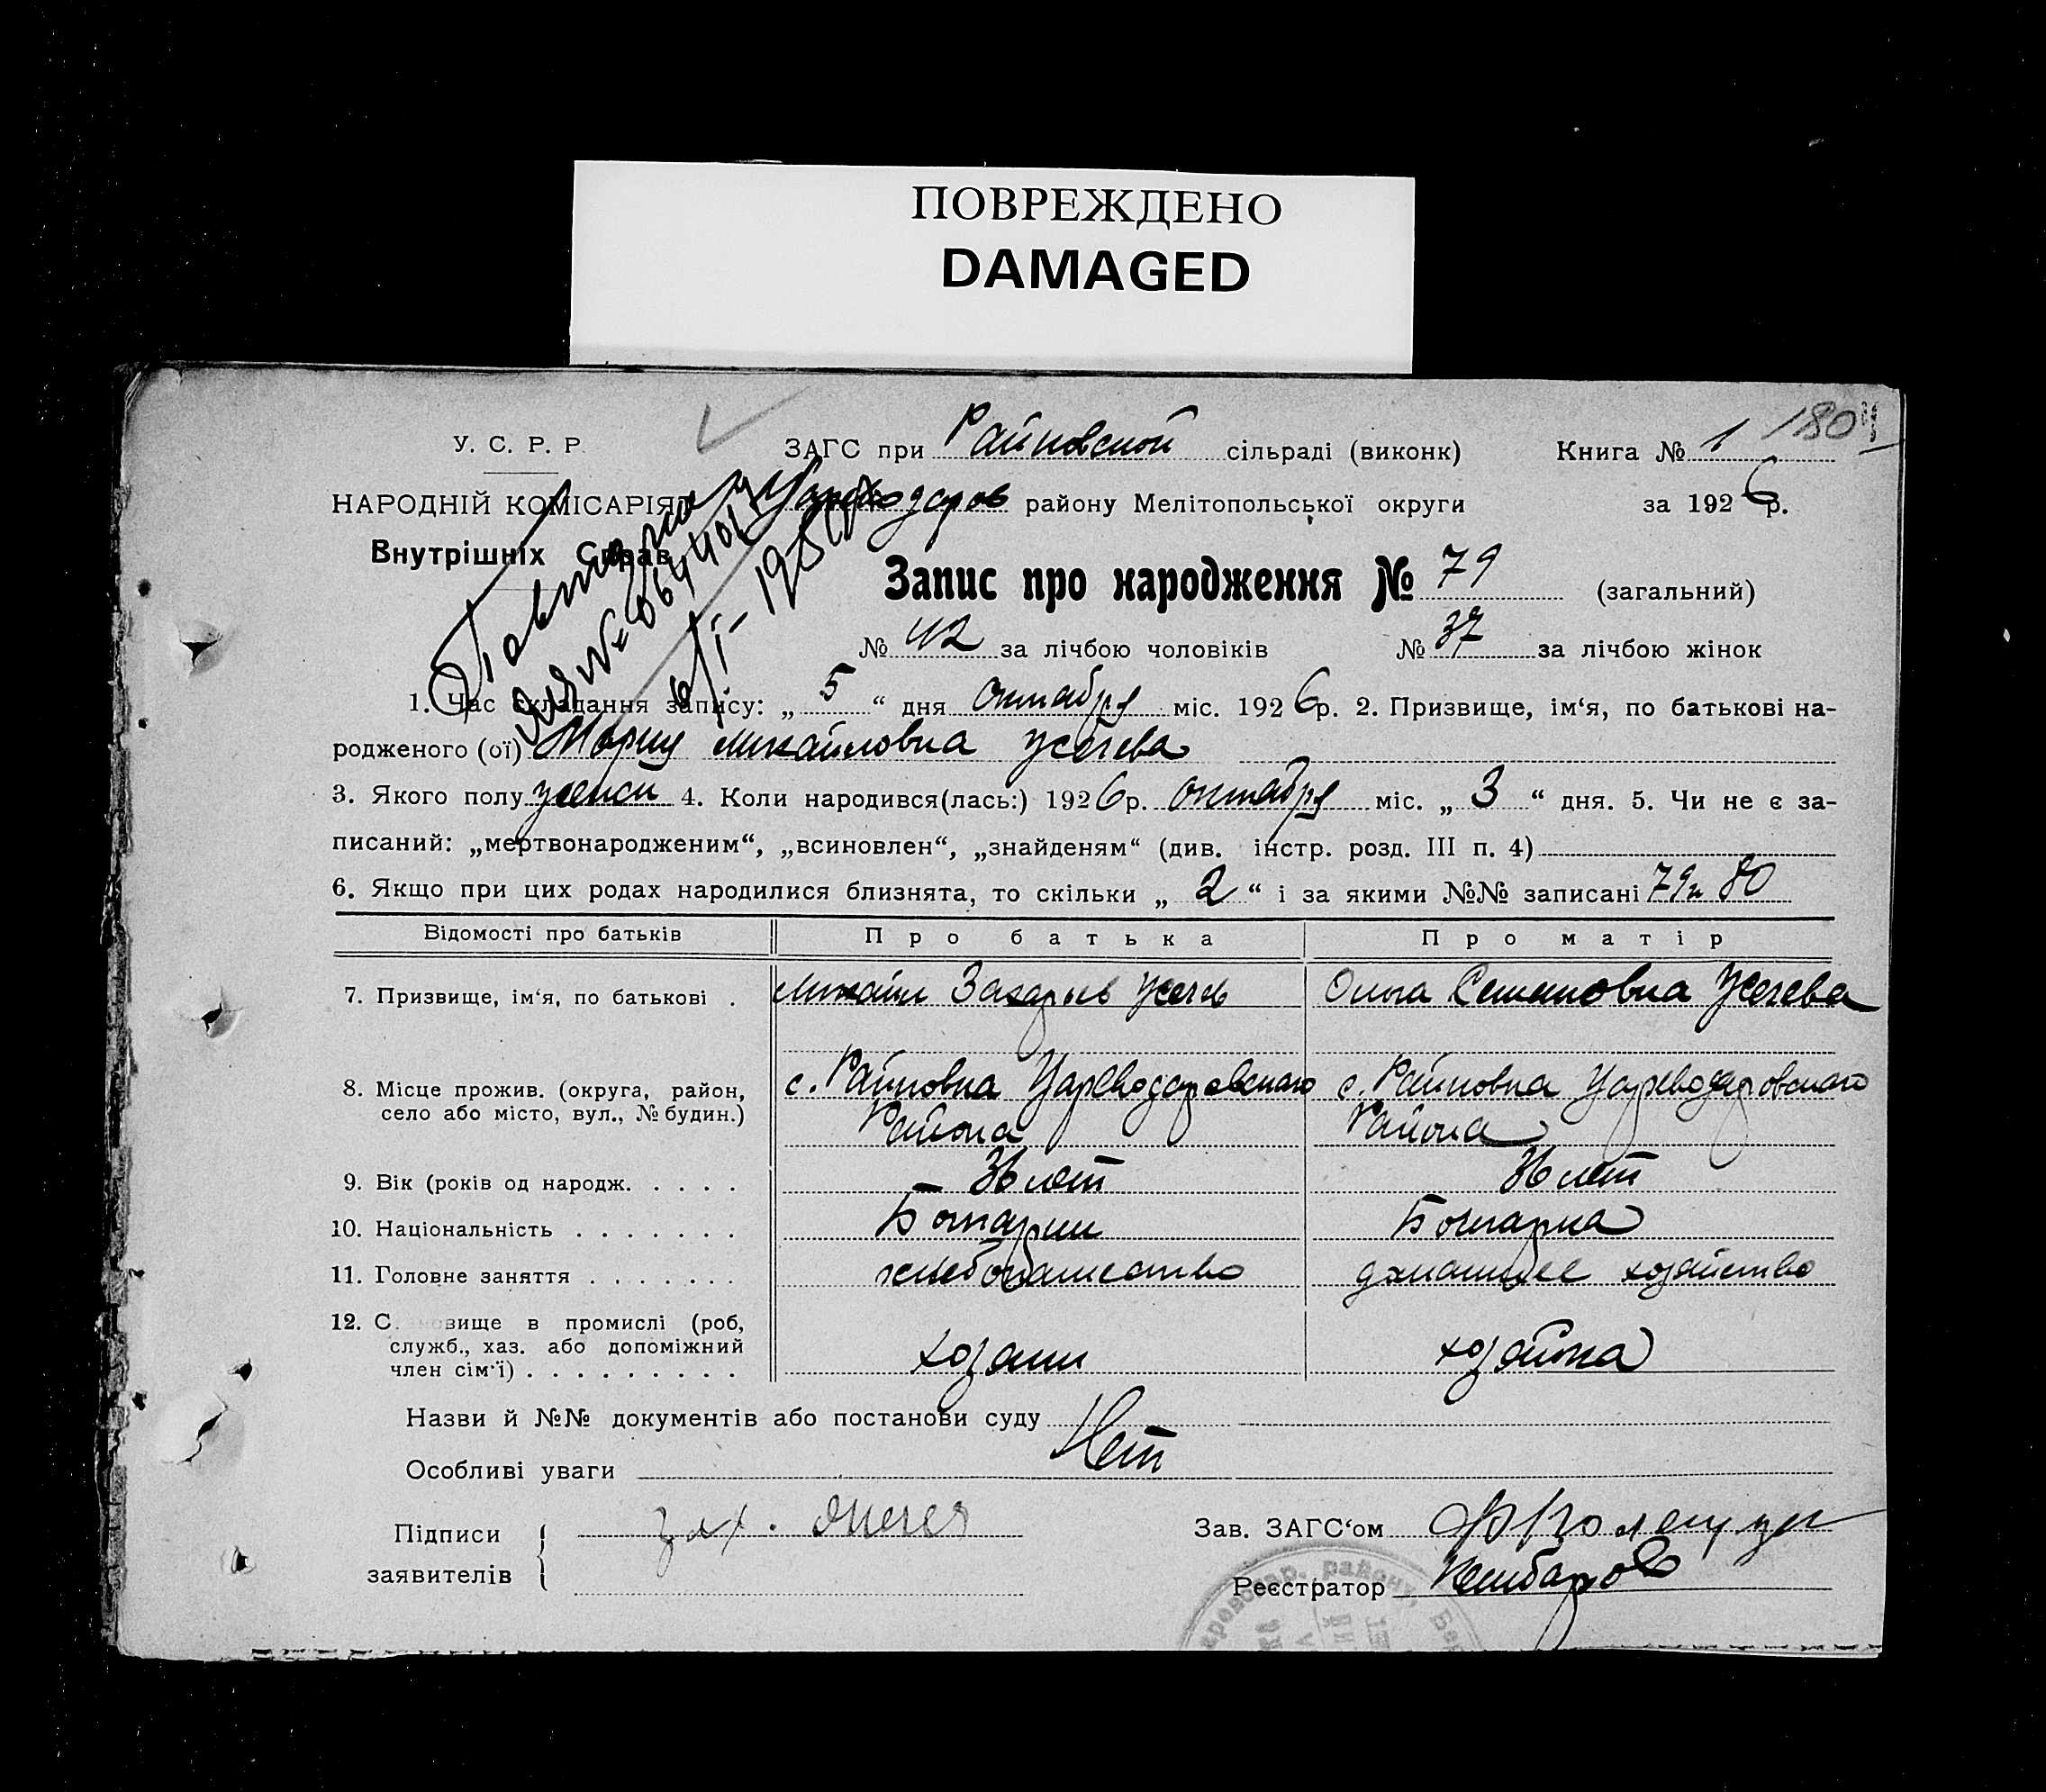 ПОВРЕЖДЕНО
DAMAGED
У. С. Р. Р.
ЗАГС при Райновской сільраді (виконк)
Книга № 1
180
НАРОДНІЙ КОМІСАРІЯТ
Царводаров району Мелітопольської округи
за 1926 р.
Внутрішніх Справ
Повторное
6/I-195
Запис про народження № 79 (загальний)
№ 42 за лічбою чоловіків № 37 за лічбою жінок
1. Час складання запису: „ 5 “ дня октября міс. 1926 р. 2. Призвище, ім‘я, по батькові на-
родженого (ої) Мария Михайловна Усачева
3. Якого полу женск 4. Коли народився(лась:) 1926 р. октября міс. „ 3 “ дня. 5. Чи не є за-
писаний: „мертвонародженим“, „всиновлен“, „знайденям“ (див. інстр. розд. III п. 4)
6. Якщо при цих родах народилися близнята, то скільки „ 2 “ і за якими №№ записані 79 и 80
Відомості про батьків Про батька Про матір
7. Призвище, ім‘я, по батькові . Михаил Захарьев Усачев Ольга Семеновна Усачева
8. Місце прожив. (округа, район, с. Райновка Царводаровского с. Райновка Царводаровского
село або місто, вул., № будин.) Района Района
9. Вік (років од народж. . . . . 36 лет 36 лет
10. Національність . . . . . . . Болгарин Болгарка
11. Головне заняття . . . . . . . хлебопашество домашнее хозяйство
12. С вище в промислі (роб,
служб., хаз. або допоміжний хозяин хозяйка
член сім‘ї) . . . . . . . . .
Назви й №№ документів або постанови суду
Нет
Особливі уваги
Підписи
заявителів
Зав. ЗАГС‘ом
Реєстратор
району